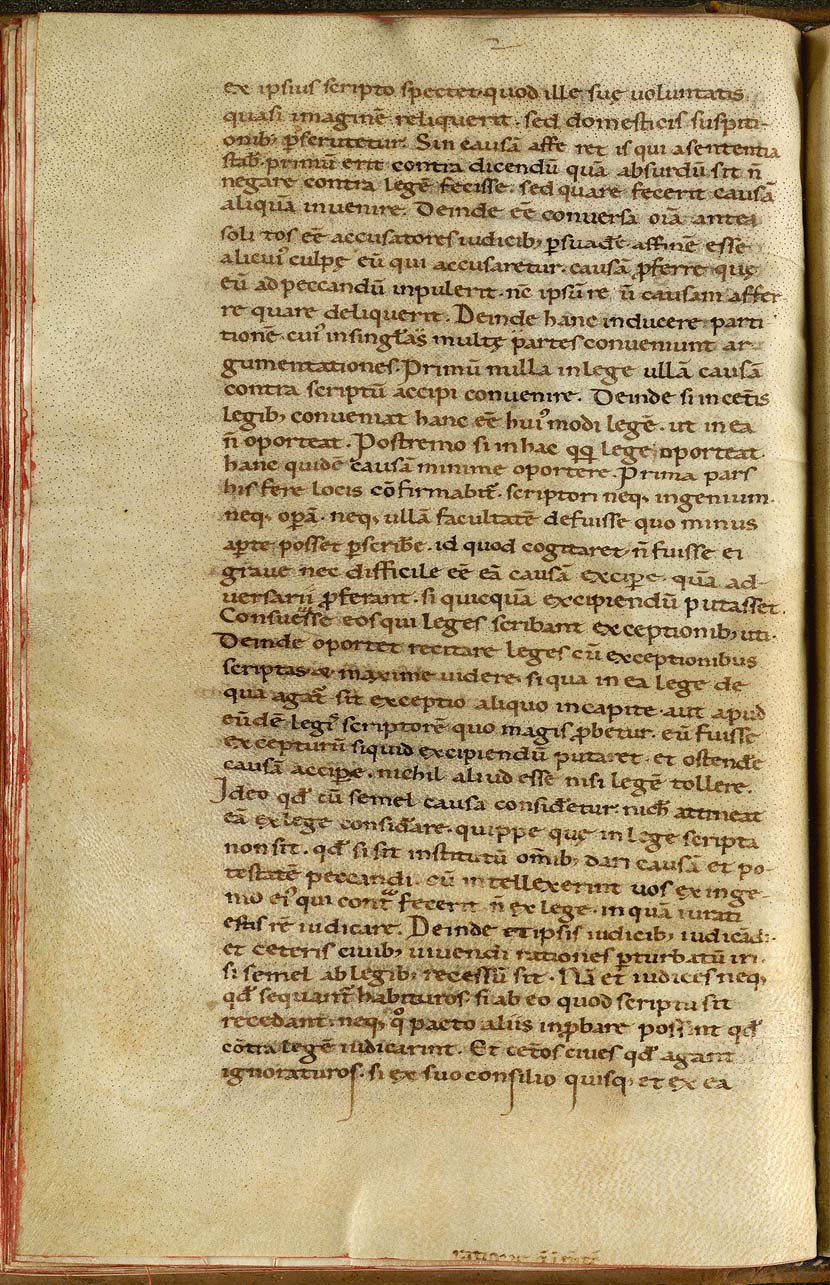 ex ipsius scripto spectet· quod ille suę uoluntatis
quasi imaginē reliquerit· sed domesticis suspiti-
onib; ꝑscrutetur. Sin causā affe ret is qui a sententia
stab· primū erit contra dicendū quā absurdū sit n̄
negare contra legē fecisse· sed quare fecerit causā
aliquā inuenire. Deinde eē conuersa oīa ante
soli tos eē accusatores iudicib; ꝑsuadē· affinē esse
alicui' culpę eū qui accusaretur· causā ꝓferre quę
eū ad peccandū inpulerit· nc̄ ipsū re ū causam affer
re quare deliquerit. Deinde hanc inducere parti
tionē· cui' in singlas multę partes conueniunt ar-
gumentationes. Primū nulla in lege ullā causā
contra scriptū accipi conuenire. Deinde si in cet̄is
legib; conueniat hanc eē hui'modi legē· ut in ea
n̄ oporteat. Postremo si in hac qq lege oporteat·
hanc quidē causā minime oportere. Prima pars
his fere locis cōfirmabit̄· scriptori neq; ingenium·
neq; oꝑā· neq; ullā facultatē defuisse quo minus
aꝑte posset ꝑscribe· id quod cogitaret· n̄ fuisse ei
graue nec difficile eē eā causā exciꝑe· quā ad-
uersarij ꝓferant· si quicquā excipiendū putasset·
Consuesse eos qui leges scribant exceptionib; uti·
Deinde oportet recitare leges cū exceptionibus
scriptas & maxime uidere· si qua in ea lege de
qua agat̄ sit exceptio aliquo in capite· aut apud
eūdē legi' scriptorē quo magis ꝓbetur· eū fuisse
excepturū siquid excipiendū putaret· et ostendē
causā acciꝑe· nichil aliud esse nisi legē tollere.
Ideo qđ cū semel causa considetur· nich attineat
eā ex lege considare· quippe quę in lege scripta
non sit· qđ si sit institutū om̄ib; dari causā et po-
testatē peccandi· cū intellexerint uos ex inge-
nio ei' qui contra fecerit n̄ ex lege· in quā iurati
estis rē iudicare. Deinde et ipsis iudicib; iudicād:·
et ceteris ciuib; uiuendi rationes ꝑturbatū iri·
si semel ab legib; recessū sit· Nā et iudices neq;
qđ sequant̄ habituros· si ab eo quod scriptū sit
recedant· neq; qo pacto aliis inꝓbare possint qđ
cōtra legē iudicarint· Et cet̄os ciues qđ agant
ignoraturos· si ex suo consilio quisq; et ex ea